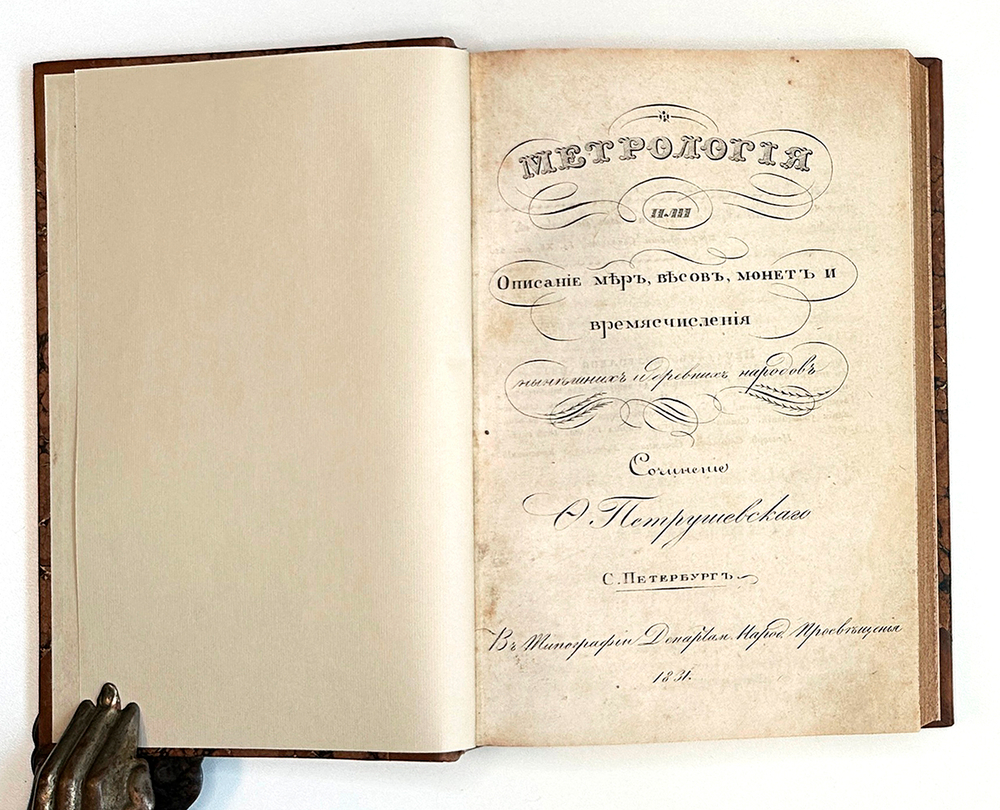 МЕТРОЛОГІЯ
ИЛИ
Описаніе мѣръ, вѣсовъ, монетъ и
времясчисленія
нынѣшнихъ и древнихъ народовъ
Сочиненіе
Ѳ. Петрушевскаго
С. ПЕТЕРБУРГЪ
Въ Типографіи Департам. Народ. Просвѣщенія
1831.